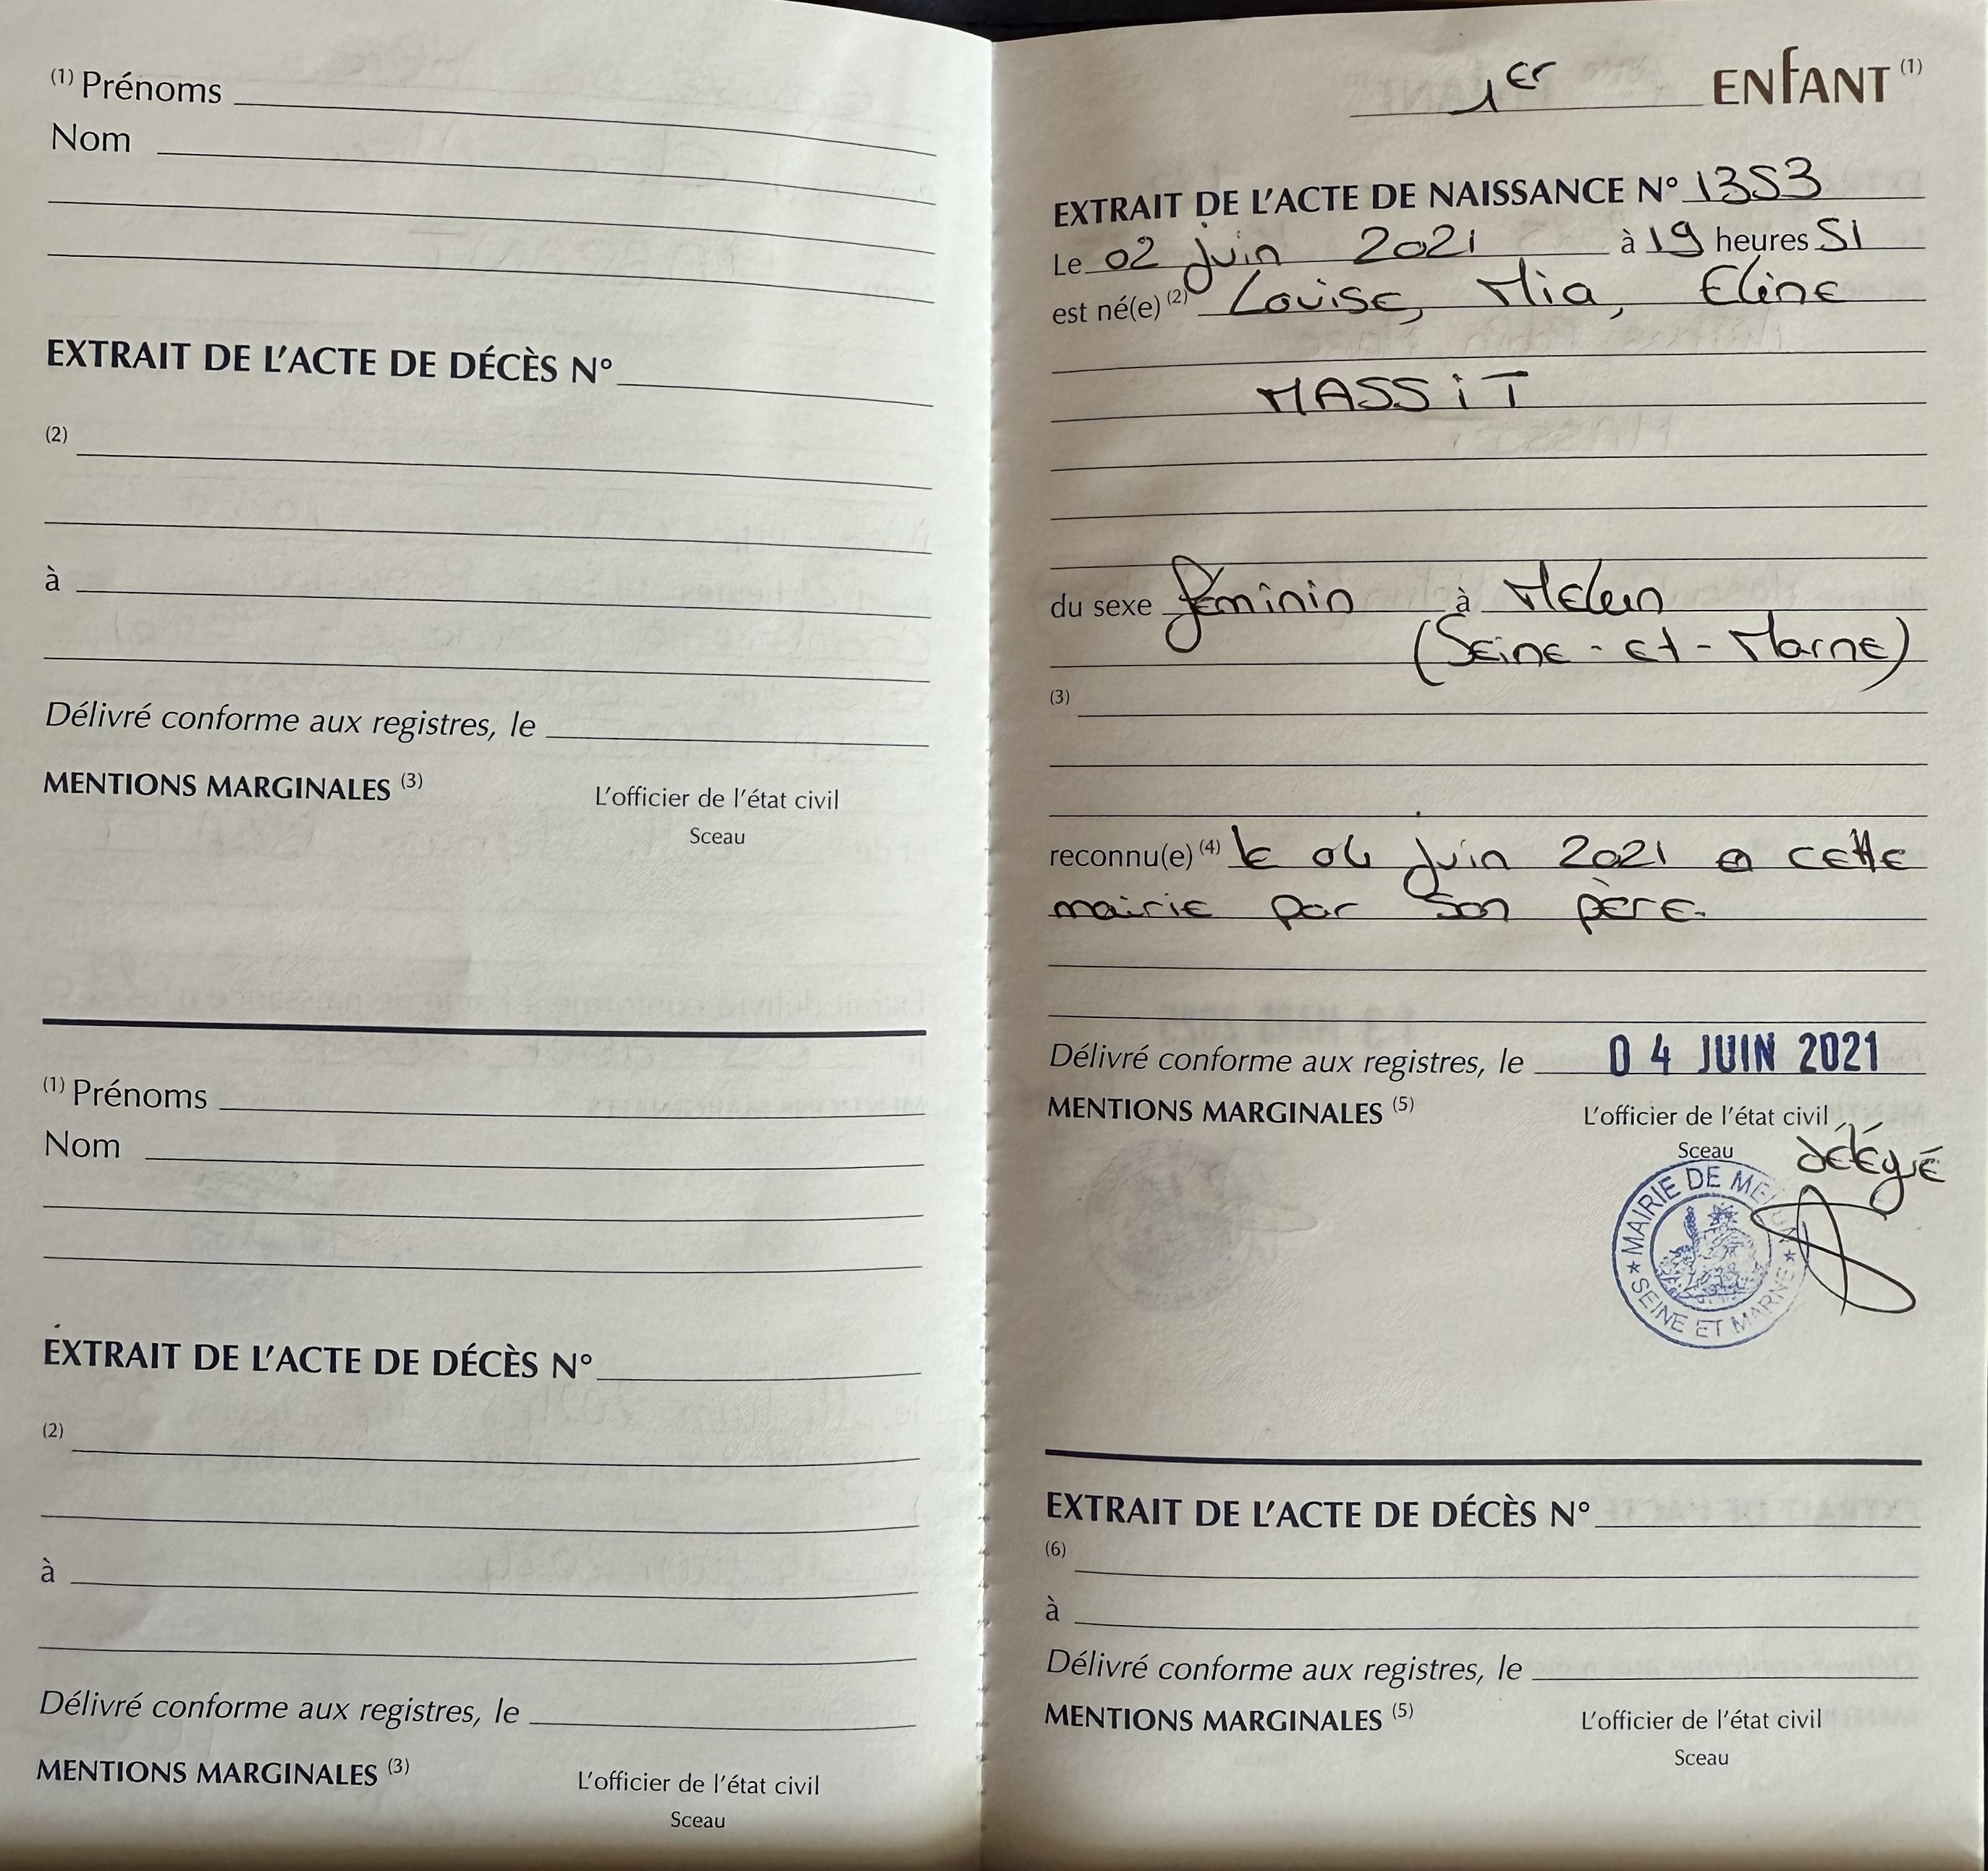 (1) Prénoms
Nom
EXTRAIT DE L'ACTE DE DÉCÈS N°
(2)
à
Délivré conforme aux registres, le
MENTIONS MARGINALES (3)
L'officier de l'état civil
Sceau
(1) Prénoms
Nom
EXTRAIT DE L'ACTE DE DÉCÈS N°
(2)
à
Délivré conforme aux registres, le
MENTIONS MARGINALES (3)
L'officier de l'état civil
Sceau
1er ENFANT (1)
EXTRAIT DE L'ACTE DE NAISSANCE N° 1353
Le 02 juin 2021 à 19 heures 51
est né(e) (2) Louise, Mia, Eline
MASSiT
du sexe féminin à Melun
(Seine-et-Marne)
(3)
reconnu(e) (4) le 04 juin 2021 en cette
mairie par son père.
Délivré conforme aux registres, le 04 JUIN 2021
MENTIONS MARGINALES (5)
L'officier de l'état civil
Sceau délégué
MAIRIE DE MELUN
SEINE ET MARNE
EXTRAIT DE L'ACTE DE DÉCÈS N°
(6)
à
Délivré conforme aux registres, le
MENTIONS MARGINALES (5)
L'officier de l'état civil
Sceau